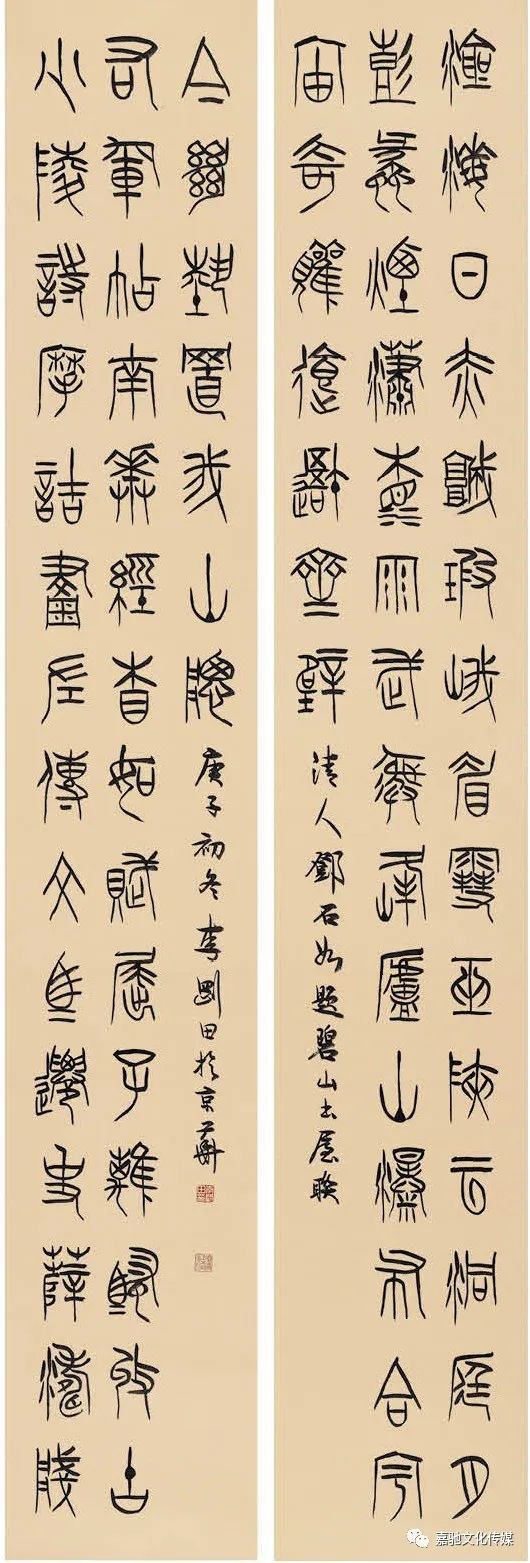 滄海日赤城霞峨眉雪巫峽云洞庭月
彭蠡煙瀟湘雨武夷峰廬山瀑布合宇
宙奇觀吾齋壁
清人鄧石如題碧山書屋聯
少陵詩摩詰畫左傳文馬遷史薛濤牋
右軍帖南華經相如賦屈子離騷收古
今絕藝置我山牕
庚子初冬李剛田於京華
嘉驰文化传媒